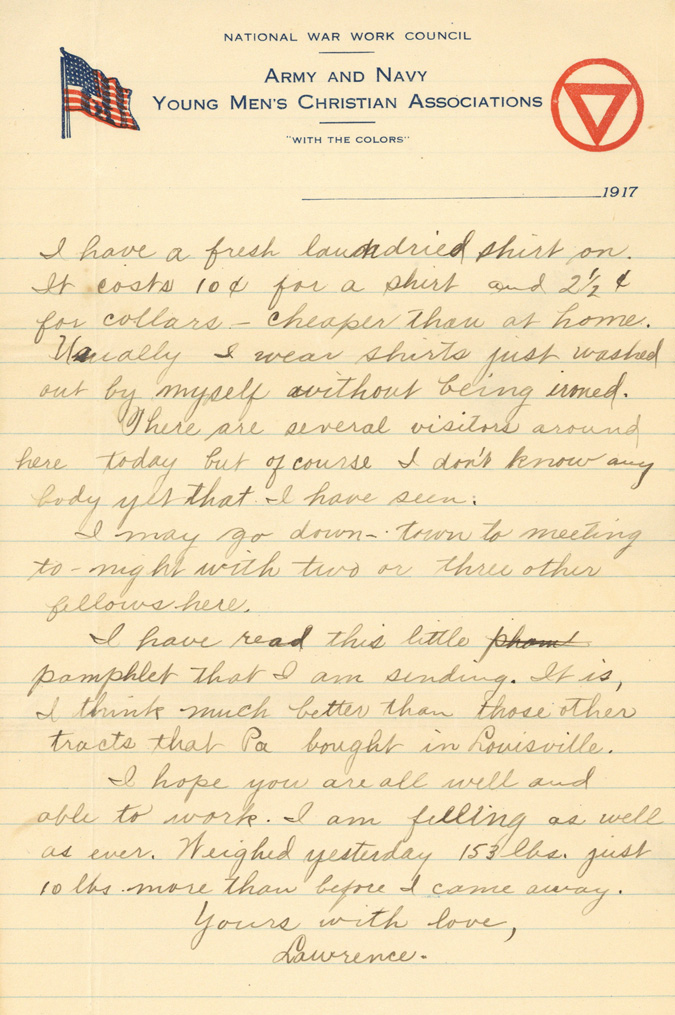 NATIONAL WAR WORK COUNCIL
ARMY AND NAVY
YOUNG MEN'S CHRISTIAN ASSOCIATIONS
"WITH THE COLORS"
1917
I have a fresh laundried shirt on.
It costs 10¢ for a shirt and 2½ ¢
for collars – cheaper than at home.
Usually I wear shirts just washed
out by myself without being ironed.
There are several visitors around
here today but of course I don't know any
body yet that I have seen.
I may go down-town to meeting
to-night with two or three other
fellows here.
I have read this little
pamphlet that I am sending. It is,
I think much better than those other
tracts that Pa bought in Louisville.
I hope you are all well and
able to work. I am felling as well
as ever. Weighed yesterday 153 lbs. just
10 lbs more than before I came away.
Yours with love,
Lawrence.